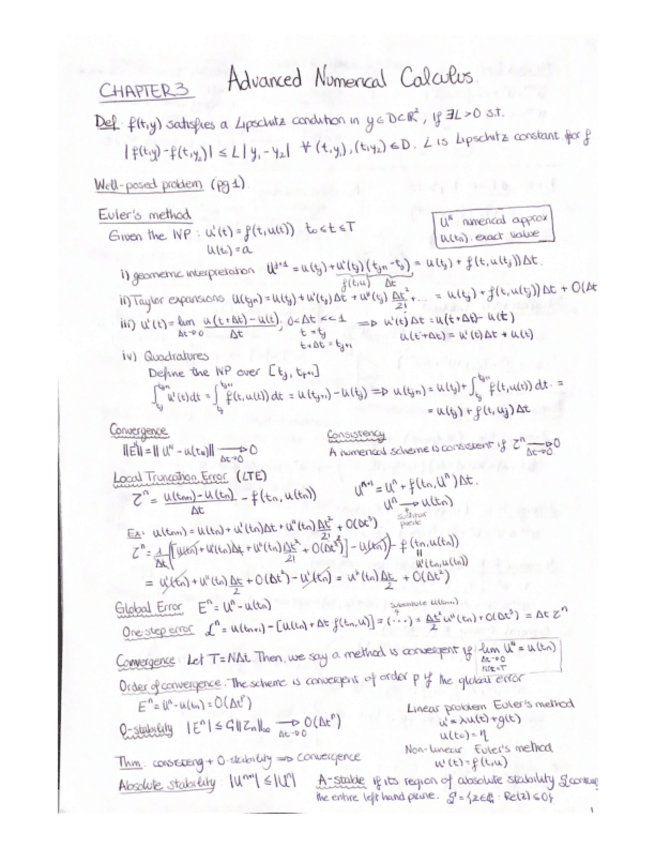 CHAPTER 3 Advanced Numerical Calculus.
Def f(t,y) satisfies a Lipschitz condition in y ∈ D⊂ℝ², if ∃L>0 s.t.
|f(t,y₁)-f(t,y₂)| ≤ L|y₁-y₂| ∀ (t,y₁),(t,y₂) ∈ D. L is Lipschitz constant for f
Well-posed problem (pg 1).
Euler's method
Given the IVP: u'(t) = f(t,u(t)) t₀≤t≤T
u(t₀)=a
Uⁿ: numerical approx
u(tₙ): exact value
i) geometric interpretation Uʲ⁺¹ = u(tⱼ)+u'(tⱼ)(tⱼ₊₁-tⱼ) = u(tⱼ) + f(t,u(tⱼ))Δt.
f(t,u) Δt
ii) Taylor expansions u(tⱼ₊₁) = u(tⱼ) + u'(tⱼ)Δt + u''(tⱼ) Δt²/2! + ... = u(tⱼ) + f(t,u(tⱼ))Δt + O(Δt
iii) u'(t) = lim Δt→0 u(t+Δt)-u(t)/Δt, 0<Δt<<1 ⇒ u'(t)Δt = u(t+Δt)-u(t)
t = tⱼ
t+Δt = tⱼ₊₁
u(t+Δt) = u'(t)Δt + u(t)
iv) Quadratures
Define the IVP over [tⱼ, tⱼ₊₁]
∫ u'(t)dt = ∫ f(t,u(t))dt = u(tⱼ₊₁)-u(tⱼ) ⇒ u(tⱼ₊₁) = u(tⱼ)+∫ f(t,u(t))dt. =
= u(tⱼ) + f(t,uⱼ)Δt
Convergence Consistency
||Eⁿ|| = ||Uⁿ - u(tₙ)|| → 0 Δt→0 A numerical scheme is consistent if τⁿ → 0 Δt→0
Local Truncation Error (LTE)
τⁿ = u(tₙ₊₁)-u(tₙ)/Δt - f(tₙ,u(tₙ)) Uⁿ⁺¹ = Uⁿ + f(tₙ,Uⁿ)Δt.
Uⁿ → u(tₙ)
Ex: u(tₙ₊₁) = u(tₙ)+u'(tₙ)Δt+u''(tₙ)Δt²/2! + O(Δt³)
τⁿ = 1/Δt [[u(tₙ)+u'(tₙ)Δt+u''(tₙ)Δt²/2! + O(Δt³)]-u(tₙ)] - f(tₙ,u(tₙ))
u'(tₙ,u(tₙ))
= u'(tₙ) + u''(tₙ)Δt/2 + O(Δt²) - u'(tₙ) = u''(tₙ)Δt/2 + O(Δt²)
Global Error Eⁿ = Uⁿ - u(tₙ)
substitute u(tₙ₊₁)
One step error 𝓛ⁿ = u(tₙ₊₁)-[u(tₙ)+Δt f(tₙ,u)] = (···) = Δt²/2 u''(tₙ) + O(Δt³) = Δt τⁿ
Convergence: Let T=NΔt. Then, we say a method is convergent if lim Uⁿ = u(tₙ)
Δt→0
NΔt=T
Order of convergence: The scheme is convergent of order p if the global error
Eⁿ = Uⁿ - u(tₙ) = O(Δtᵖ)
Linear problem Euler's method
u' = λu(t)+g(t)
u(t₀) = η
0-stability |Eⁿ| ≤ C||τₙ||∞ → O(Δtᵖ) Δt→0
Non-linear Euler's method
u'(t) = f(t,u)
Thm: consistency + 0-stability ⇒ convergence
Absolute stability |Uⁿ⁺¹| ≤ |Uⁿ| A-stable if its region of absolute stability
the entire left hand plane. = {z∈ℂ : Re(z)≤0}
1